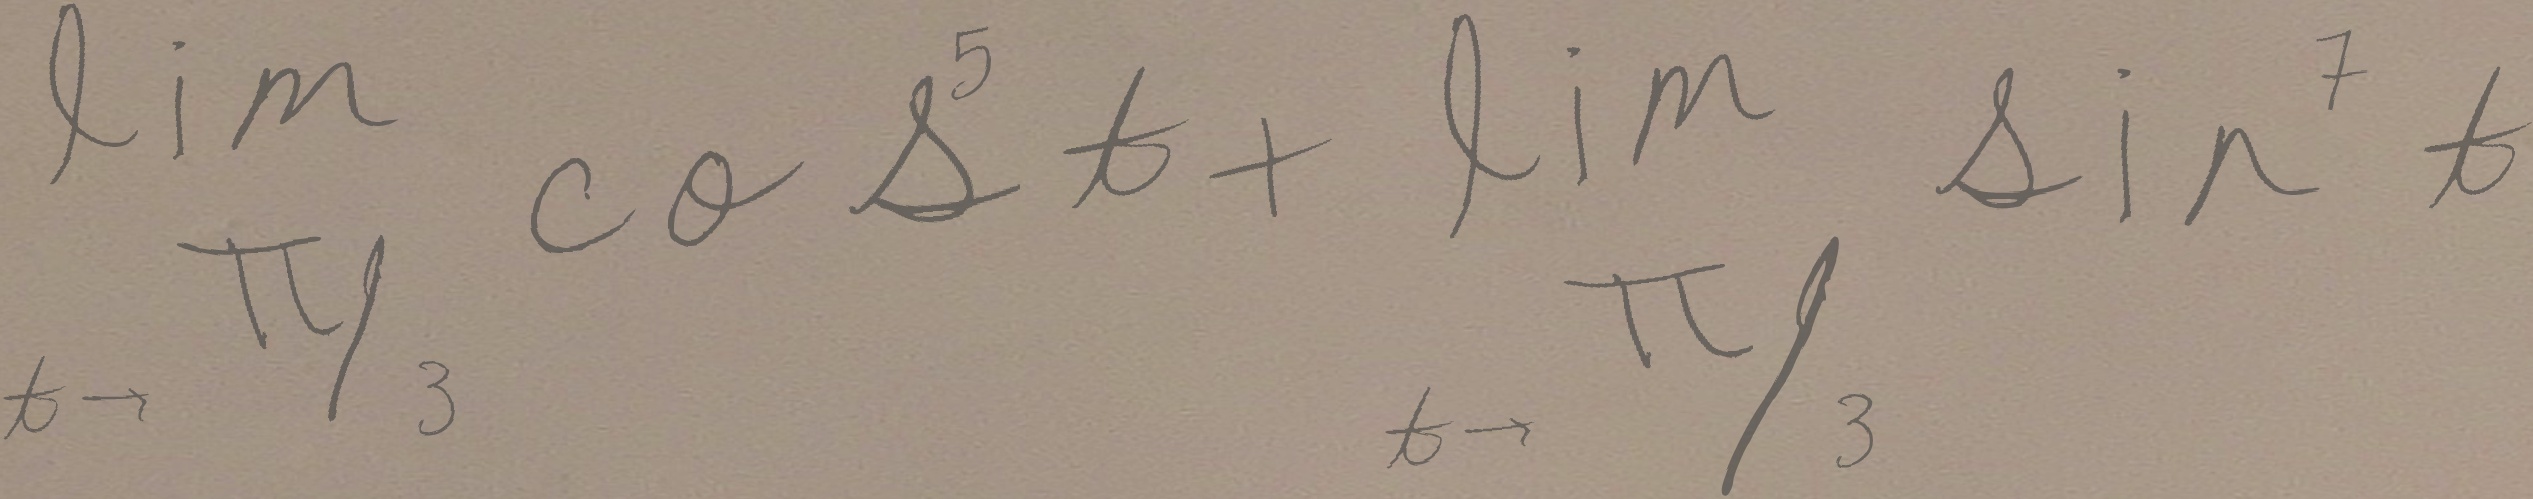 \lim_{t \to \pi/3} \cos^5 t + \lim_{t \to \pi/3} \sin^7 t